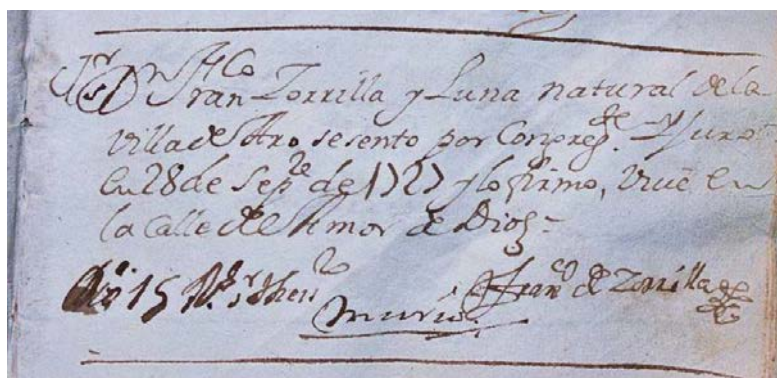 Sr Dn Franco Zorrilla y Luna natural de la
Villa de Aro se sento por Congregte. Y Juro
en 28 de Sepre de 1727 y lo firmo, Vive en
la Calle del Amor de Dios=
Dio 15 Rs
murio. Franco de Zorrilla